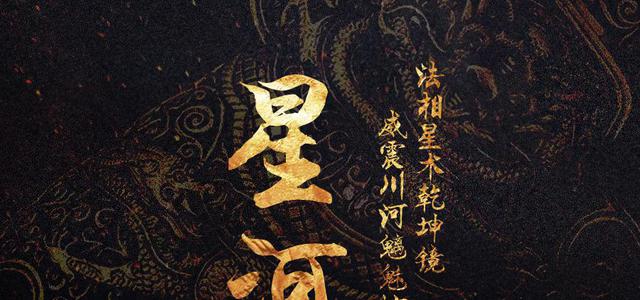 法相星木乾坤鏡
威震川河魑魅
星河